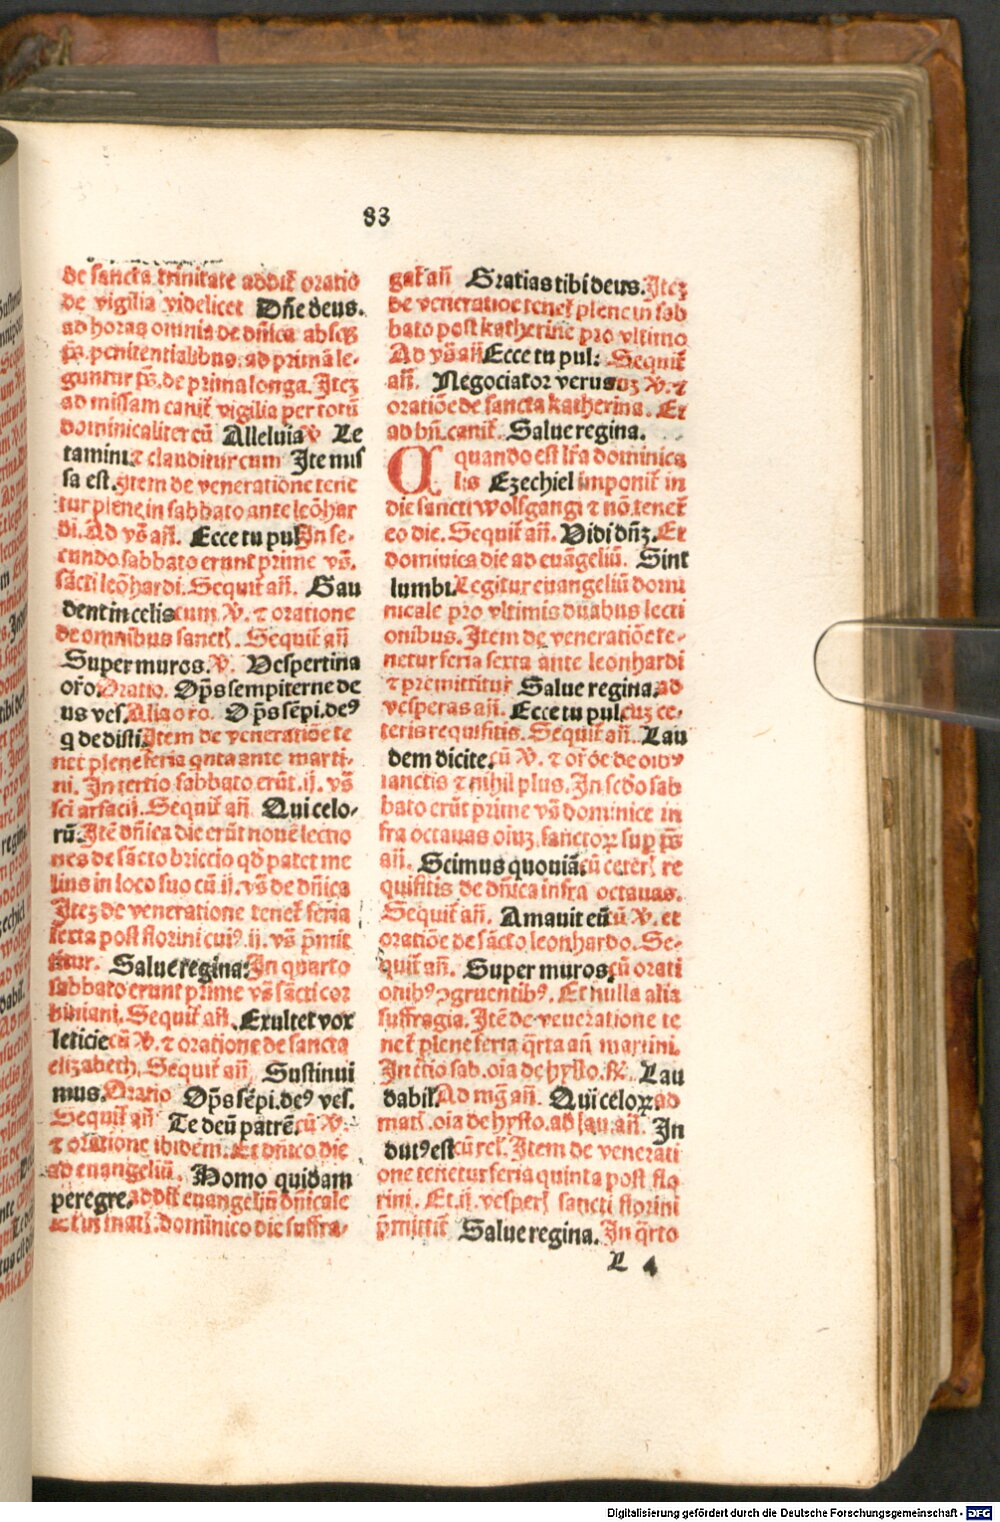 83
de sancta trinitate addit̃ oratio
de vigilia videlicet Dñe deus.
ad horas omnia de dñica absqꝫ
p̃s. penitentialibus. ad primã le-
guntur p̃s. de prima longa. Jteꝫ
ad missam canit̃ vigilia per totũ
dominicaliter cũ Alleluia ℣ Le
tamini. ⁊ clauditur cum Jte mis
sa est. Jtem de veneratione tene
tur plene in sabbato ante leõhar
di. Ad vs̃ añ. Ecce tu pul Jn se-
cundo sabbato erunt prime vs̃.
sãcti leõhardi. Sequit̃ añ. Gau
dent in celis cum ℣. ⁊ oratione
de omnibus sanct̃. Sequit̃ añ
Super muros. ℣. Vespertina
or̃o. Oratio. Op̃s sempiterne de
us ves. Alia oro. Op̃s sẽpi. deꝰ
q de disti. Jtem de veneratiõe te
net̃ plene feria q̃nta ante marti-
ni. Jn tertio sabbato erũt. ij. vs̃
sci arsacij. Sequit̃ añ. Qui celo-
rũ. Jtẽ dñica die erũt nouẽ lectio
nes de sãcto briccio qđ patet me
lius in loco suo cũ. ij. vs̃ de dñica
Jteꝫ de veneratione tenet̃ feria
sexta post florini cuiꝰ. ij. vs̃ p̃mit
titur. Salue regina. Jn quarto
sabbato erunt prime vs̃ sãcti cor
biniani. Sequit̃ añ. Exultet vox
leticie cũ ℣. ⁊ oratione de sancta
elizabeth. Sequit̃ añ Sustinui
mus. Oratio Op̃s sẽpi. deꝰ ves.
Sequit̃ añ Te deũ patrẽ. cũ ℣.
⁊ oratione ibidem. Et dñico die
ad euangeliũ. Homo quidam
peregre. ad dc̃t euangeliũ dñicale
⁊ c̃t̃ inat̃. dominico die suffra-
gat̃ añ Gratias tibi deus. Jteꝫ
de veneratiõe tenet̃ plene in sab
bato post katherine pro vltimo
Ad vs̃ añ Ecce tu pul: Sequit̃
añ. Negociator verus cuꝫ ℣. ⁊
oratiõe de sancta katherina. Et
ad bñ. canit̃. Salue regina.
A quando est lr̃a dominica
lis Ezechiel imponit̃ in
die sancti wolfgangi ⁊ nõ tenet̃
eo die. Sequit̃ añ. Vidi dñꝫ. Et
dominica die ad euãgeliũ. Sint
lumbi. Legitur euangeliũ domi
nicale pro vltimis duabus lecti
onibus. Jtem de veneratiõe te-
netur feria sexta ante leonhardi
⁊ premittitur Salue regina. ad
vesperas añ. Ecce tu pul. cuꝫ ce-
teris requisitis. Sequit̃ añ. Lau
dem dicite. cũ ℣. ⁊ or̃õe de oĩbꝰ
sanctis ⁊ nihil plus. Jn scđo sab
bato erũt prime vs̃ dominice in
fra octauas oĩuꝫ sanctoꝝ sup p̃s
añ. Scimus quoniã. cũ ceter̃ re
quisitis de dñica infra octauas.
Sequit̃ añ. Amauit eũ cũ ℣. et
oratiõe de sãcto leonhardo. Se-
quit̃ añ. Super muros. cũ orati
onibꝰ ꝯgruentibꝰ. Et nulla alia
suffragia. Jtẽ de veneratione te
net̃ plene feria q̃rta añ martini.
Jn t̃tio sab. oĩa de hysto. ⁊c̃. Lau
dabil̃. Ad mg̃ añ. Qui celoꝝ. ad
mat̃. oĩa de hysto. ad lau. añ. Jn
dutꝰ est cũ rel̃. Jtem de venerati
one tenetur feria quinta post flo
rini. Et. ij. vesper̃ sancti florini
p̃mittit̃ Salue regina. Jn q̃rto
L 4
Digitalisierung gefördert durch die Deutsche Forschungsgemeinschaft - DFG